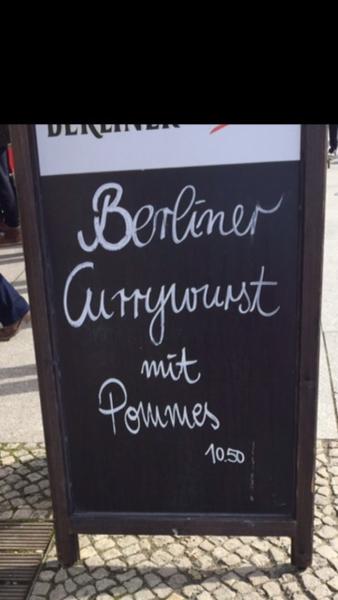 BERLINER
Berliner
Currywurst
mit
Pommes
10.50